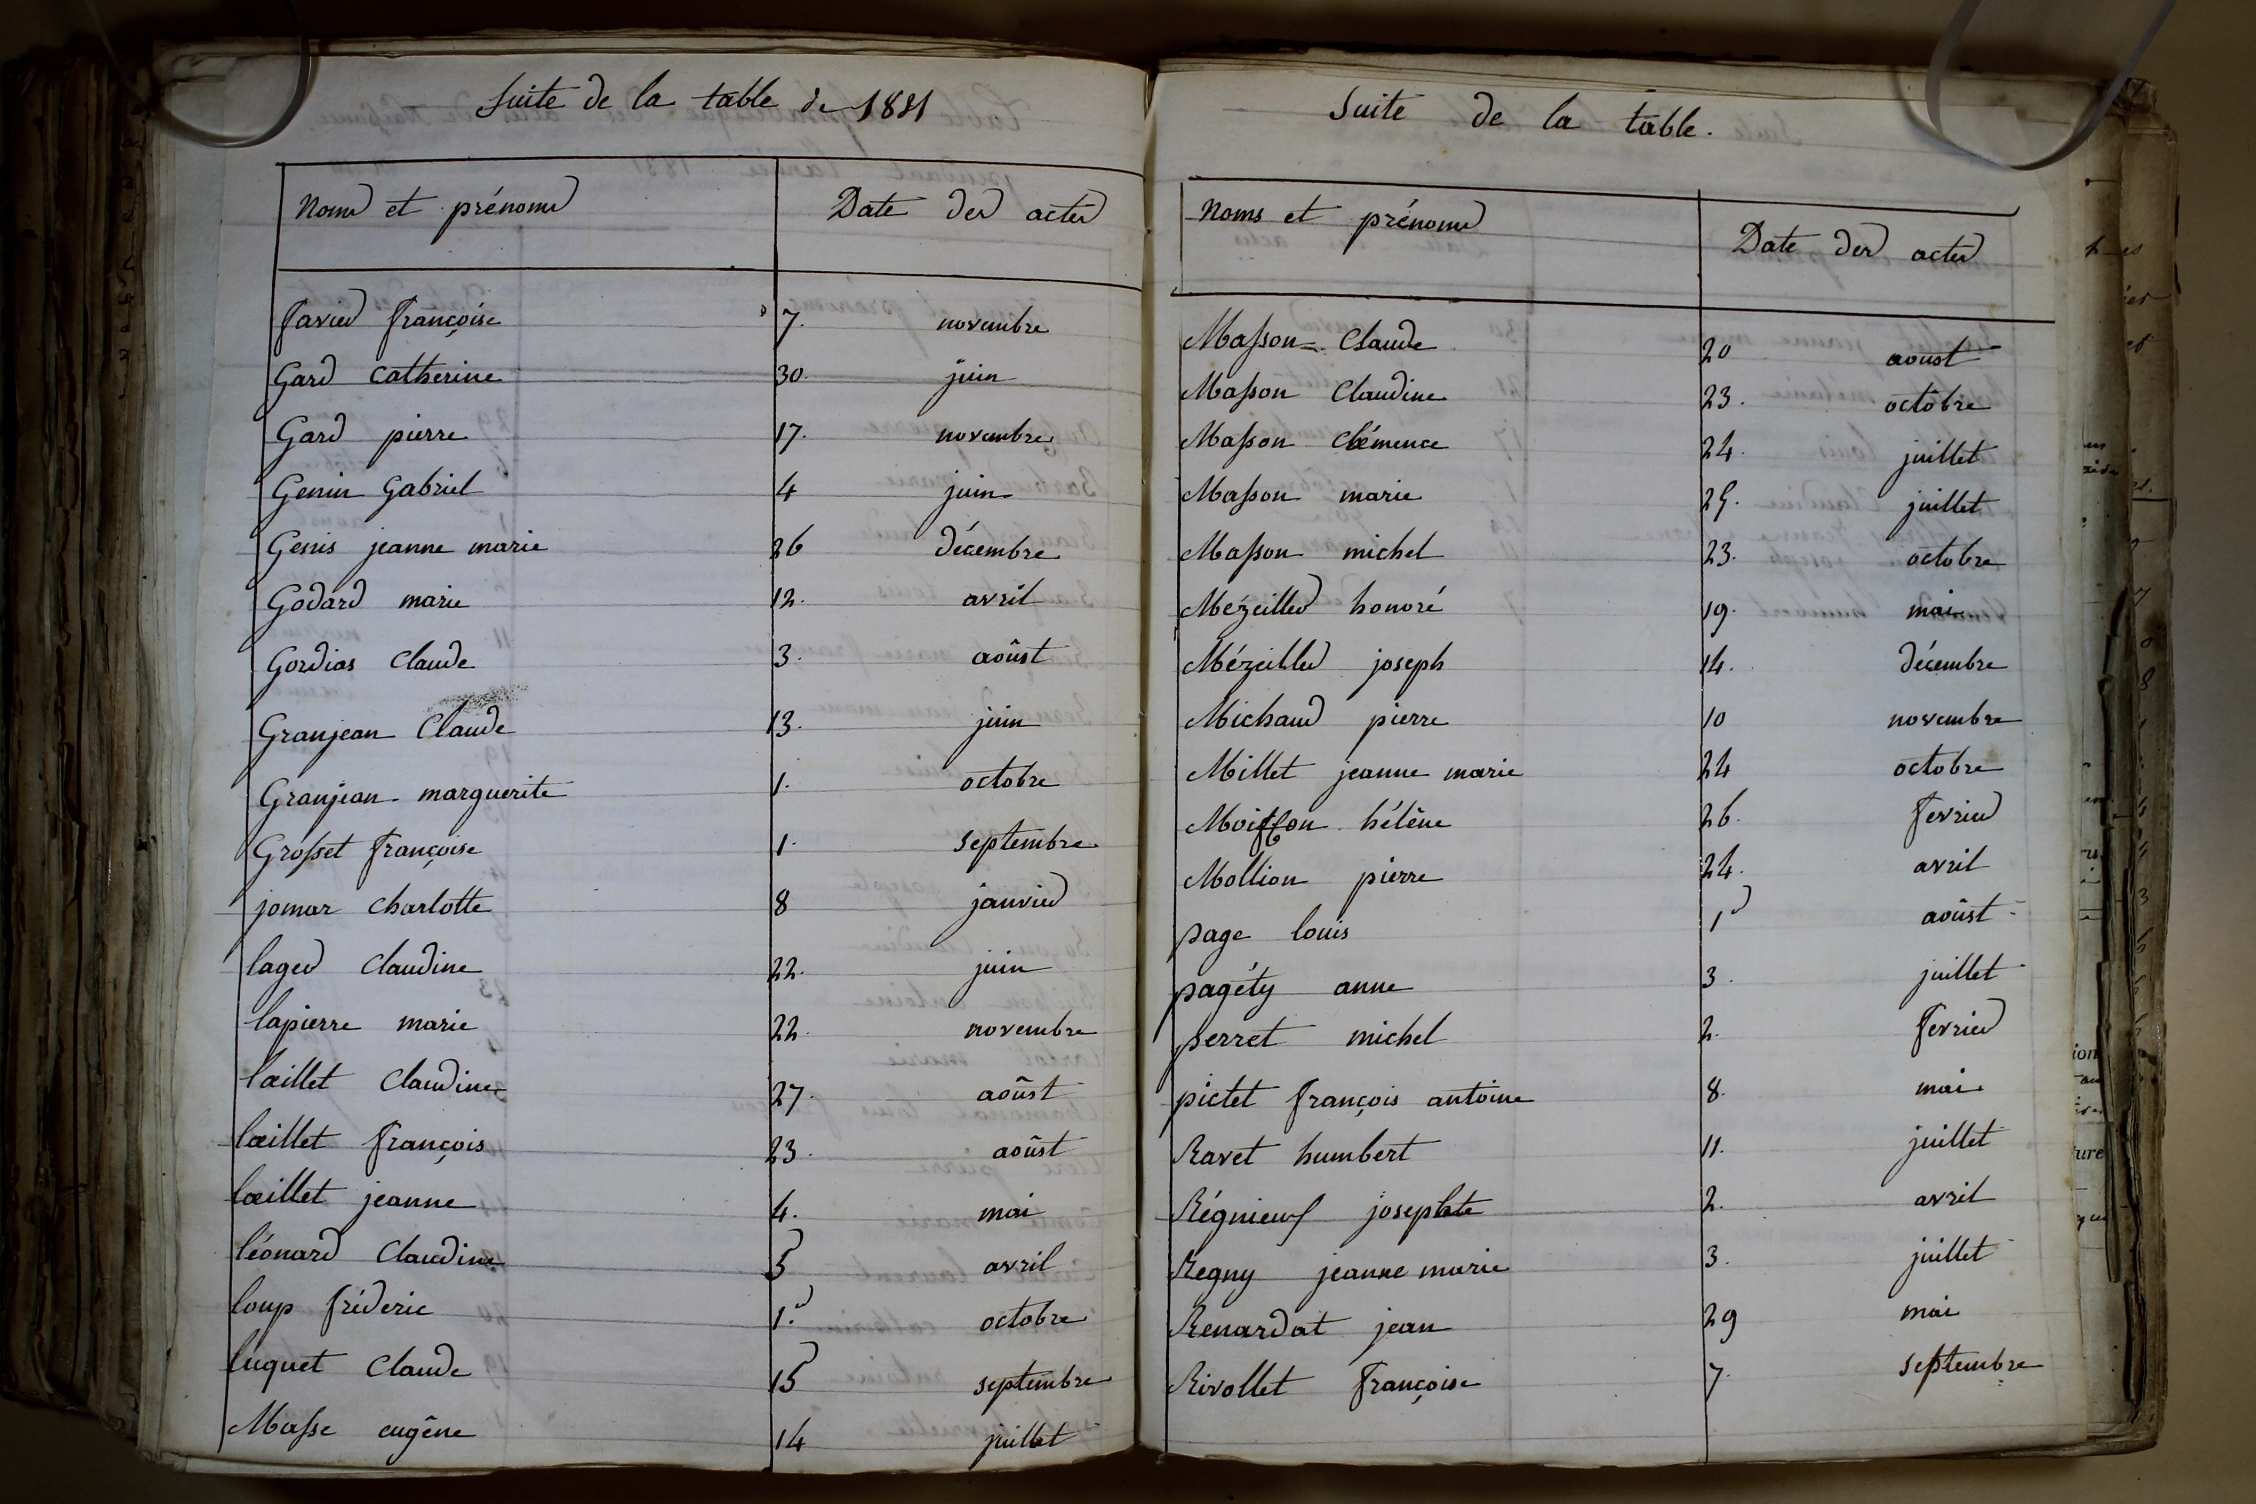 Suite de la table de 1831
Noms et prénoms Date des actes
favier françoise 7. novembre
Gard catherine 30. juin
Gard pierre 17. novembre
Genin Gabriel 4 juin
Genis jeanne marie 26 décembre
Godard marie 12. avril
Gordias Claude 3. aoûst
Granjean Claude 13. juin
Granjean marguerite 1. octobre
Grosset françoise 1. septembre
jomar charlotte 8 janvier
lager claudine 22. juin
lapierre marie 22. novembre
lœillet Claudine 27. aoûst
lœillet françois 23. aoûst
lœillet jeanne 4. mai
léonard Claudine 5 avril
loup fréderic 1.er octobre
luquet Claude 15 septembre
Masse eugêne 14 juillet
Suite de la table.
Noms et prénoms Date des actes
Masson Claude 20 aoust
Masson Claudine 23. octobre
Masson Clémence 24. juillet
Masson marie 25. juillet
Masson michel 23. octobre
Mézeiller honoré 19. mai
Mézeiller joseph 14. décembre
Michaud pierre 10 novembre
Millet jeanne marie 24 octobre
Moiffon hélêne 26. fevrier
Mollion pierre 24. avril
page louis 1er aoûst
pagéty anne 3. juillet
perret michel 2. fevrier
pictet françois antoine 8. mai
Ravet humbert 11. juillet
Régnieux josephte 2. avril
Regny jeanne marie 3. juillet
Renardat jean 29 mai
Rivollet françoise 7. septembre